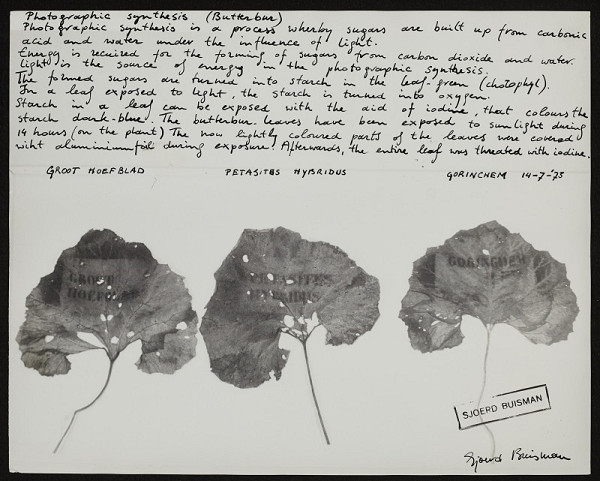 Photographic synthesis (Butterbur)
Photographic synthesis is a process wherby sugars are built up from carbonic
acid and water under the influence of light.
Energy is recuired for the forming of sugars from carbon dioxide and water.
light is the source of energy in the photographic synthesis.
The formed sugars are turned into starch in the leaf-green (chotophyl).
In a leaf exposed to light, the starch is turned into oxygen.
Starch in a leaf can be exposed with the aid of iodine, that colours the
starch dark-blue. The butterbur-leaves have been exposed to sunlight during
14 hours (on the plant) The now lightly coloured parts of the leaves were covered
wiht aluminiumfoil during exposure. Afterwards, the entire leaf was threated with iodine.
GROOT HOEFBLAD PETASITES HYBRIDUS GORINCHEM 14-7-'75
GROOT
HOEFBLAD
PETASITES
HYBRIDUS
GORINCHEM
SJOERD BUISMAN
Sjoerd Buisman